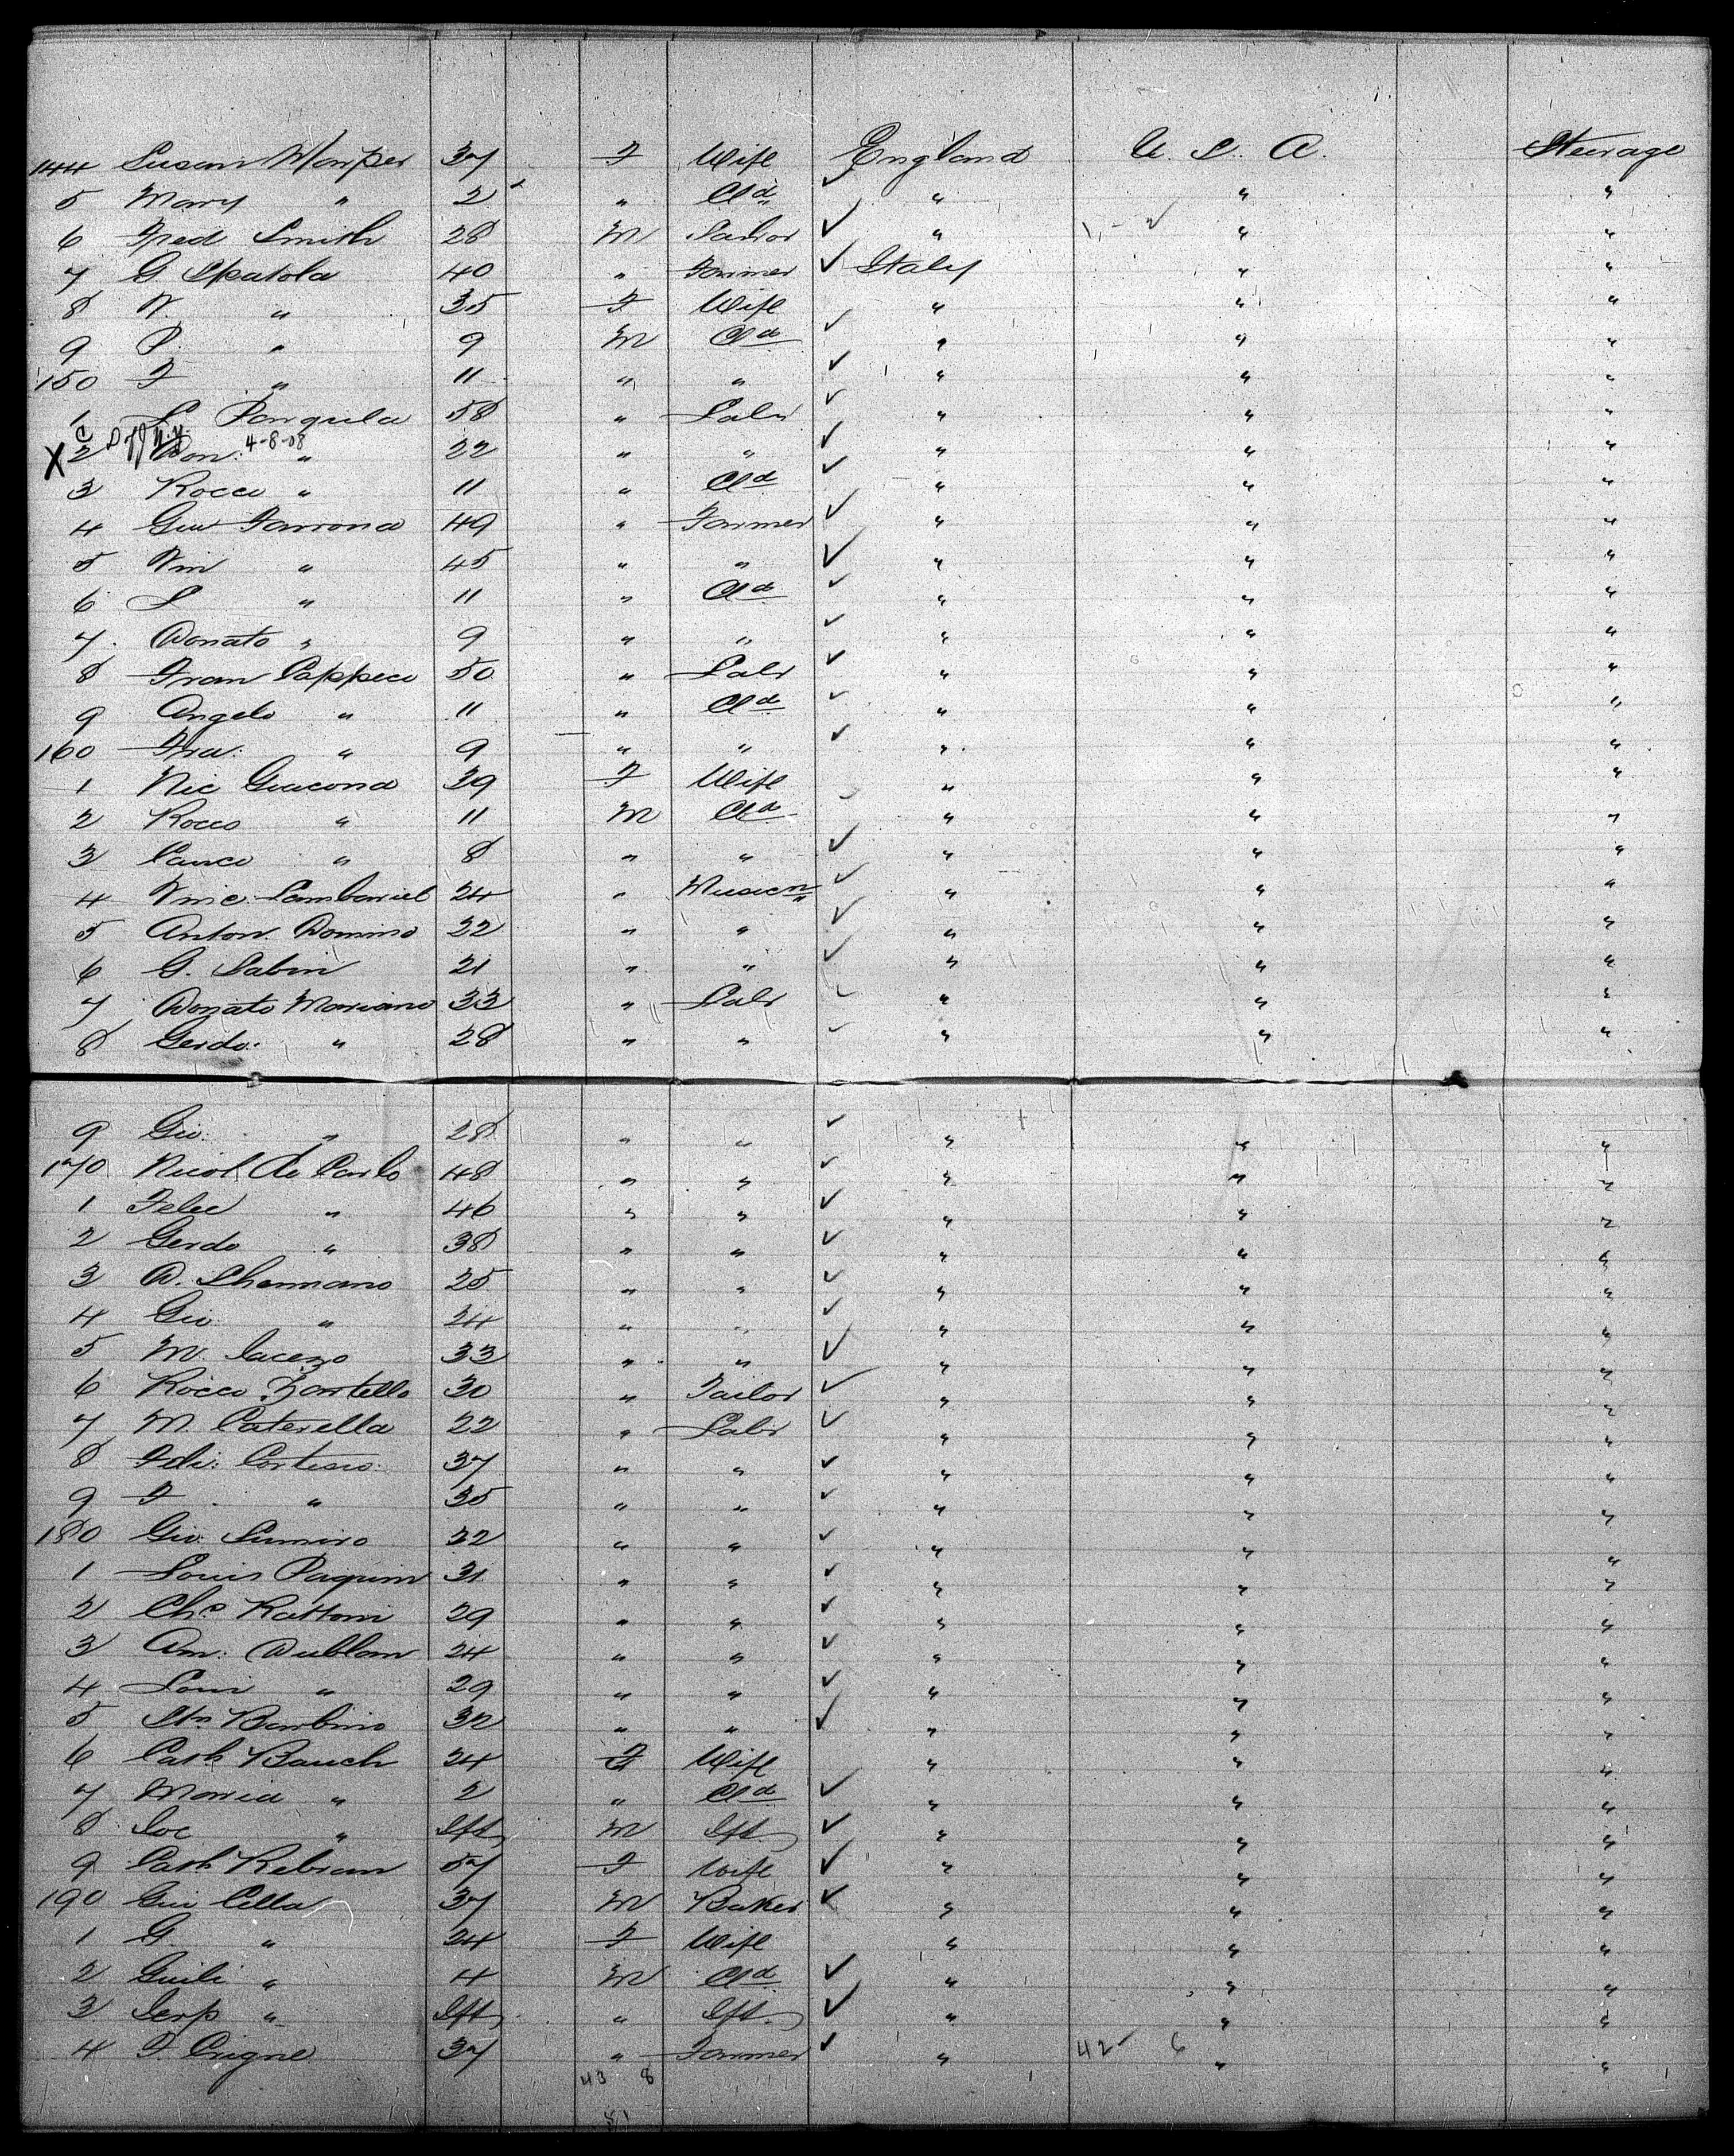 144 Susan Warper 37 F Wife England U. S. A. Steerage
5 Mary " 2 " Cld " " "
6 Fred Smith 28 M Sailor " " "
7 G Spatola 40 " Farmer Italy " "
8 V. " 35 F Wife " " "
9 P. " 9 M Cld " " "
150 F " 11 " " " " "
1 L Panquela 58 " Labr " " "
C 4-8-08
X 2 Don: " 22 " " " " "
3 Rocco " 11 " Cld " " "
4 Giu Farrona 49 " Farmer " " "
5 Vin " 45 " " " " "
6 L " 11 " Cld " " "
7 Donato " 9 " " " " "
8 Fran Cappeci 50 " Labr " " "
9 Angelo " 11 " Cld " " "
160 Fra: " 9 " " " " "
1 Nic Giacona 39 F Wife " " "
2 Rocco " 11 M Cld " " "
3 Cance " 8 " " " " "
4 Vinc: Lambariel 24 " Musicn " " "
5 Anton. Domino 22 " " " " "
6 G. Sabin 21 " " " " "
7 Donato Mariano 33 " Labr " " "
8 Gerdo: " 28 " " " " "
9 Gio: " 28 " " " " "
170 Nicol. de Carlo 48 " " " " "
1 Felec " 46 " " " " "
2 Gerdo " 38 " " " " "
3 D. Shermano 25 " " " " "
4 Gio " 24 " " " " "
5 M. Iacezo 33 " " " " "
6 Rocco Zartello 30 " Tailor " " "
7 M. Caterella 22 " Labr " " "
8 Fdi: Cortese: 37 " " " " "
9 F " 35 " " " " "
180 Gio. Sumiro 32 " " " " "
1 Louis Paquin 31 " " " " "
2 Chs Rattoni 29 " " " " "
3 Am: Dublam 24 " " " " "
4 Loui " 29 " " " " "
5 Stn Barbino 32 " " " " "
6 Cath Bauch 24 F Wife " " "
7 Maria " 2 " Cld " " "
8 Ioc " Ift M Ift " " "
9 Cath Rebian 57 F Wife " " "
190 Gio Cella 37 M Baker " " "
1 G. " 24 F Wife " " "
2 Guili " 4 M Cld " " "
3 Serp " Ift " Ift " " "
4 F. Crigne 37 " Farmer " " "
42 6
43 8
51